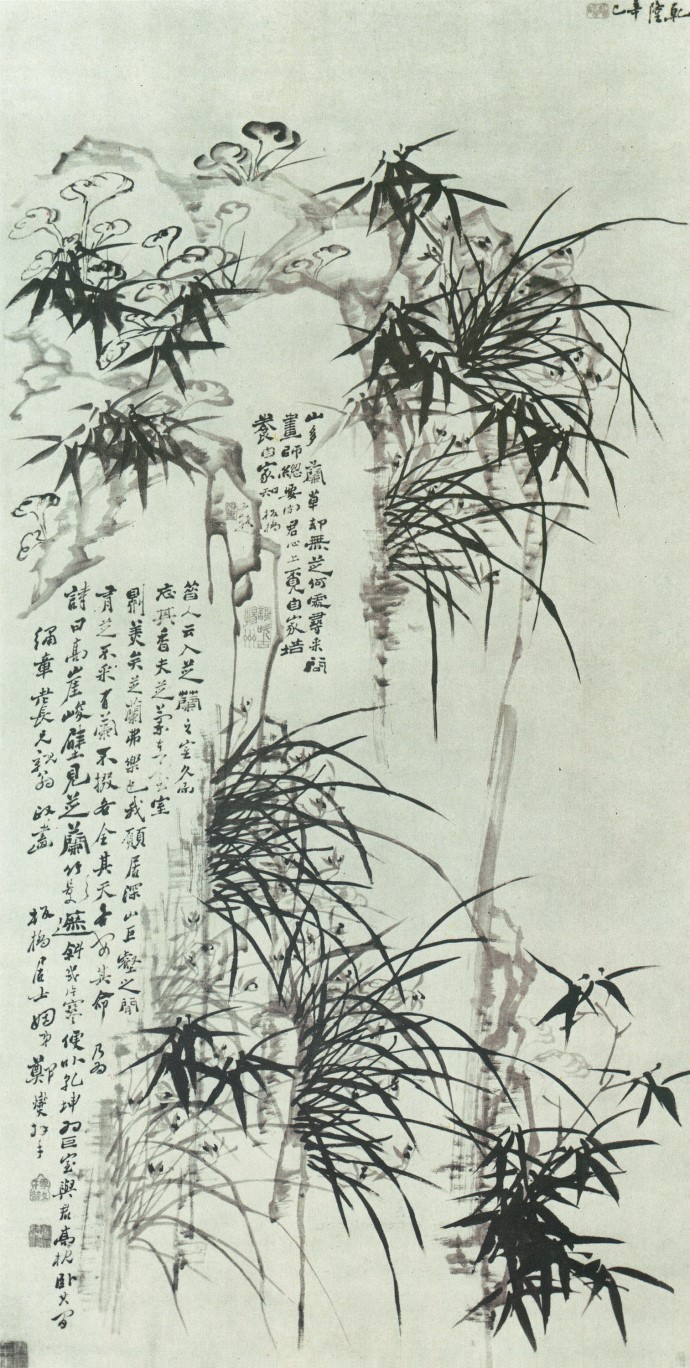 乾隆辛巳
山多蘭草却無芝何處尋來問
畫師總要向君心上覓自家培
養自家知 板橋
昔人云入芝蘭之室久而
忘其香夫芝蘭入室室
則美矣芝蘭弗樂也我願居深山巨壑之間
有芝不采有蘭不掇各全其天各安其命 乃为
詩曰高崖峻壁見芝蘭竹影遮斜幾片寒便以乾坤为巨室與君高枕卧其間
彌章老長兄親翁政畫 板橋居士姻弟鄭燮拜手